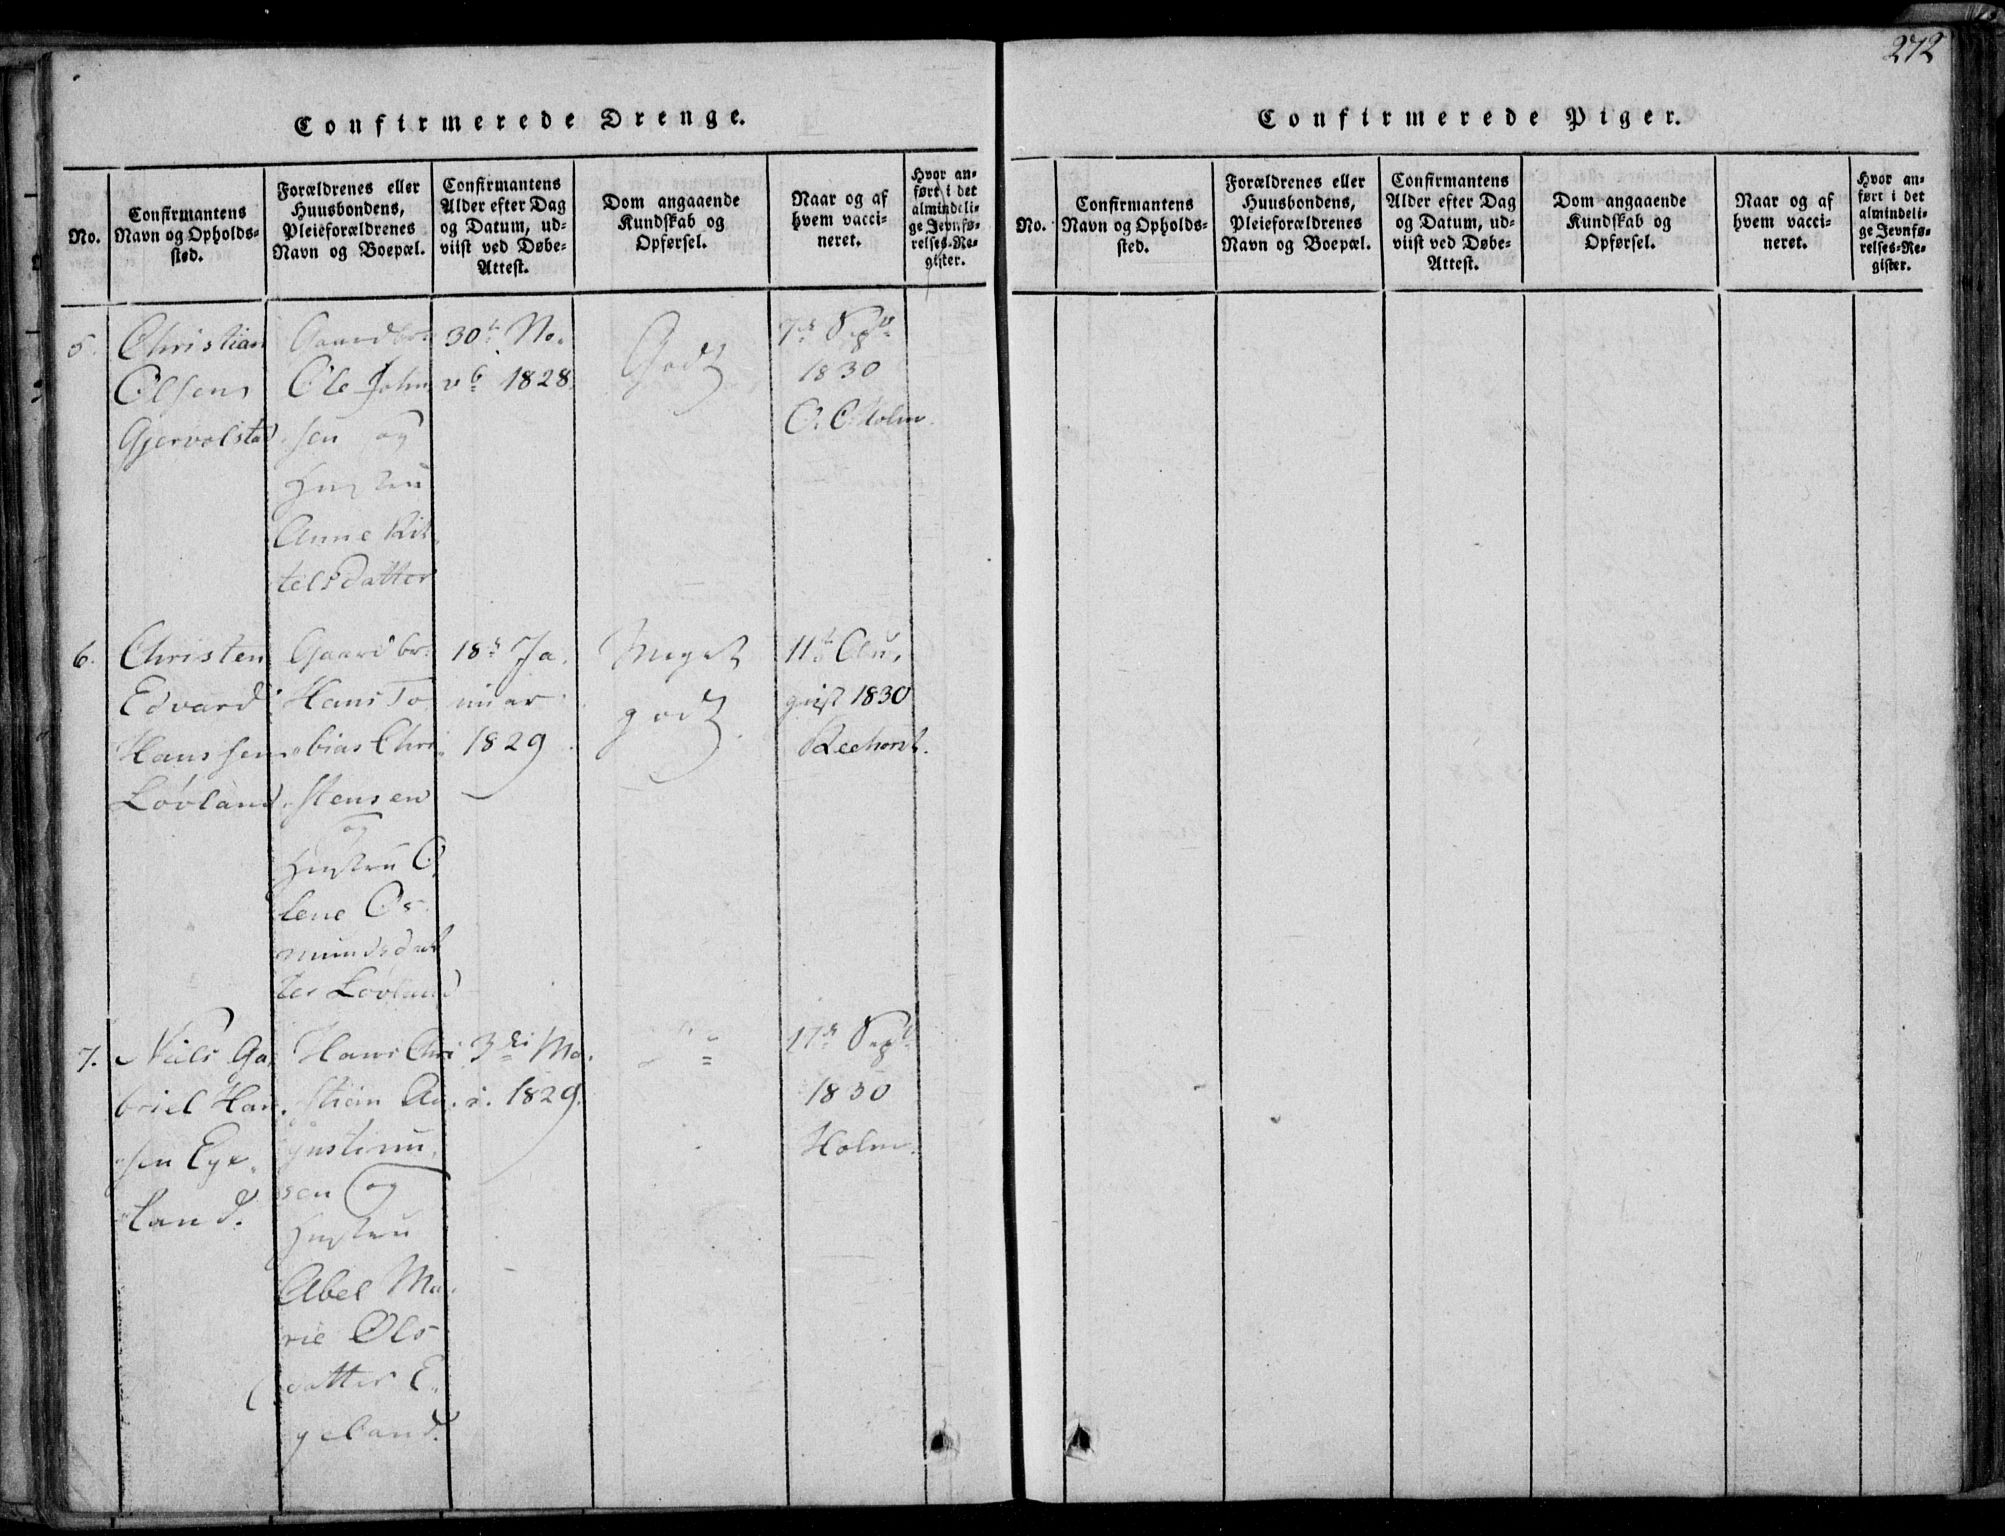 272
Confirmerede Drenge.
No.
Confirmantens
Navn og Opholds-
sted.
Forældrenes eller
Huusbondens,
Pleieforældrenes
Navn og Boepæl.
Confirmantens
Alder efter Dag
og Datum, ud-
viist ved Døbe-
Attest.
Dom angaaende
Kundskab og
Opførsel.
Naar og af
hvem vacci-
neret.
Hvor an-
ført i det
almindeli-
ge Jevnfø-
relses-Re-
gister.
5.
Christian
Olsens
Gjervolstad
Gaardbr.
Ole John
sen og
Hustru
Anne Kit
telsdatter
30t No.
vb 1828.
Godt
7de Sept
1830
O. C. Holm.
6.
Christen
Edvard
Hanssen
Lövland
Gaardbr.
Hans To
bias Chri
stensen
og
Hustru O
lene Os
mundsdat
ter Lövland
18d Ja.
nuar
1829
Meget
godt
11te Au,
gust 1830
7.
Niels Ga,
briel Han.
sen Eye.
land.
Hans Chri
stian Au.
gustinu,
sen og
Hustru
Abel Ma.
rie Ols
datter E.
geland.
3di Ma.
i. 1829.
17de Sept
1830
Holm.
Confirmerede Piger.
No.
Confirmantens
Navn og Opholds-
sted.
Forældrenes eller
Huusbondens,
Pleieforældrenes
Navn og Boepæl.
Confirmantens
Alder efter Dag
og Datum, ud-
viist ved Døbe-
Attest.
Dom angaaende
Kundskab og
Opførsel.
Naar og af
hvem vacci-
neret.
Hvor an-
ført i det
almindeli-
ge Jevnfø-
relses-Re-
gister.